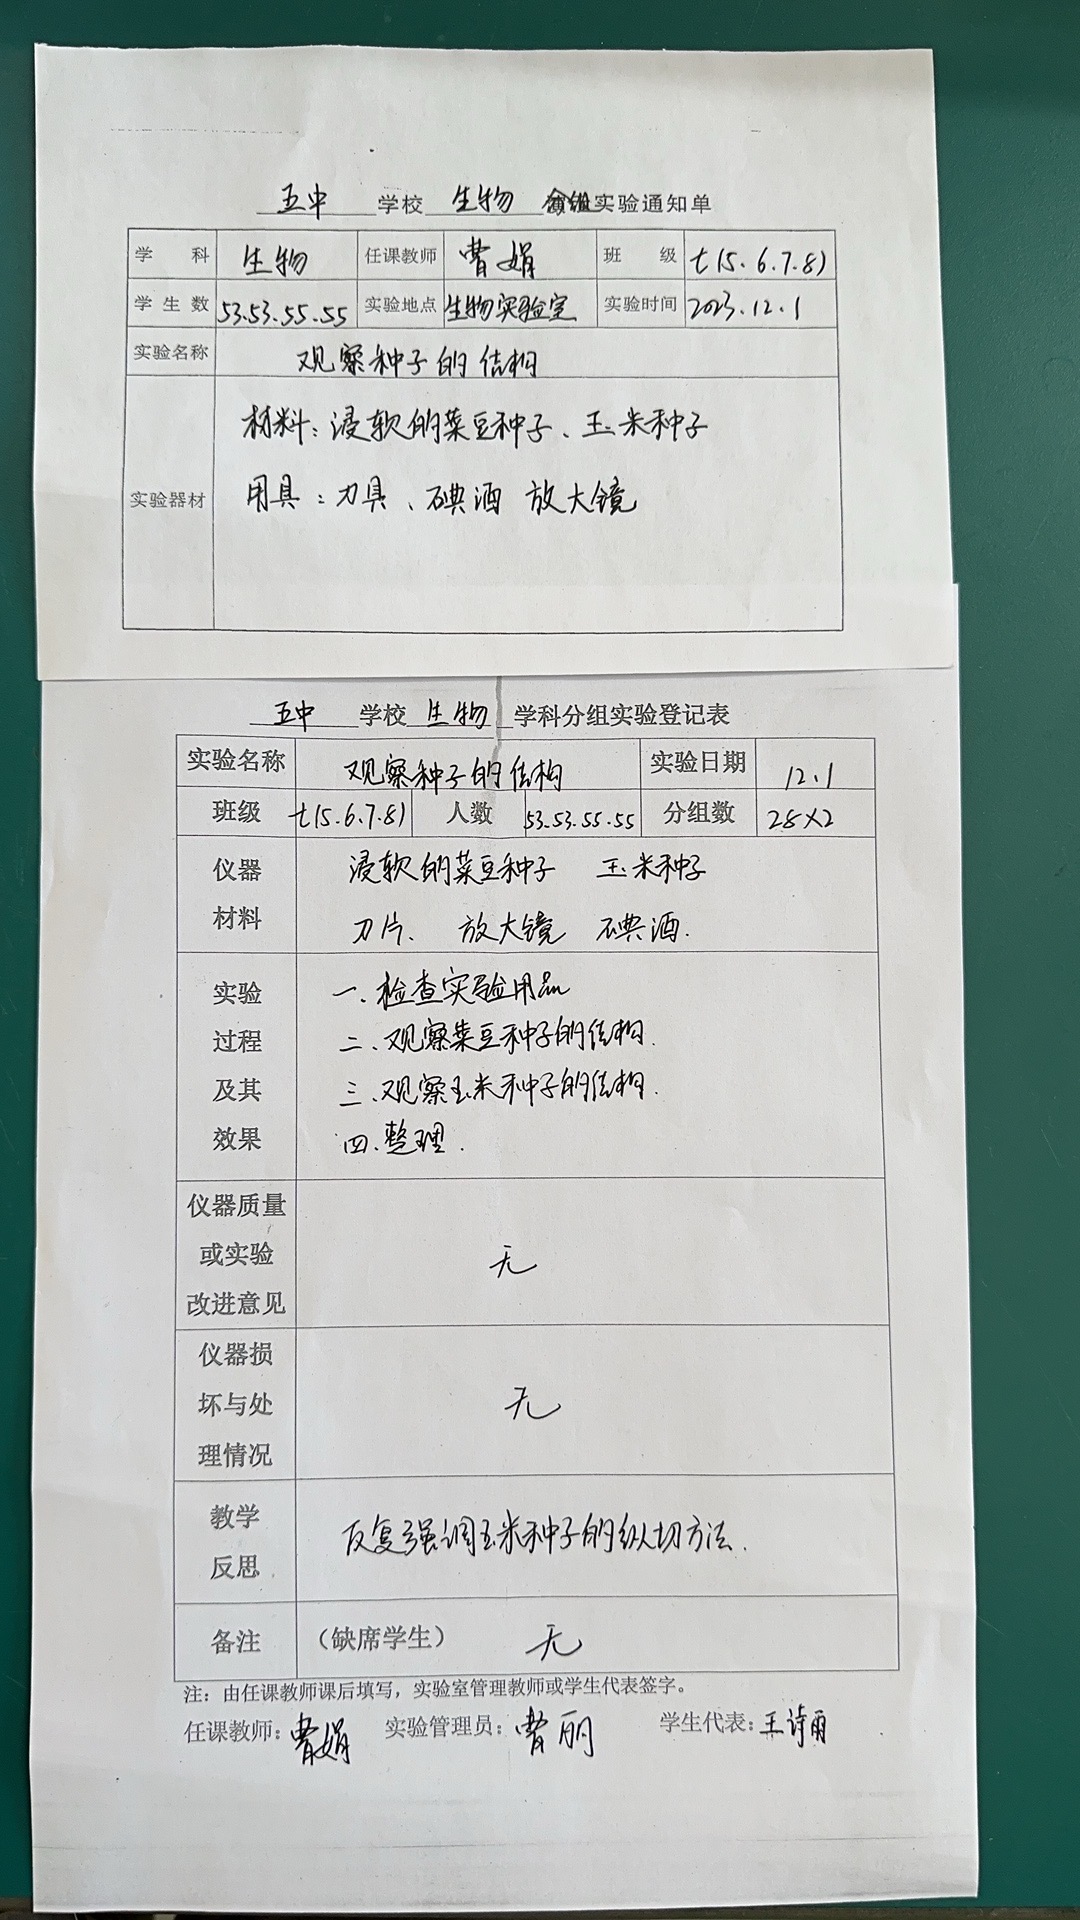 五中 学校 生物 分组实验通知单
学 科 生物 任课教师 曹娟 班 级 七(5.6.7.8)
学生数 53.53.55.55 实验地点 生物实验室 实验时间 2023.12.1
实验名称 观察种子的结构
材料：浸软的菜豆种子、玉米种子
实验器材 用具：刀具、碘酒 放大镜
五中 学校 生物 学科分组实验登记表
实验名称 观察种子的结构 实验日期 12.1
班级 七(5.6.7.8) 人数 53.53.55.55 分组数 28×2
仪器 浸软的菜豆种子 玉米种子
材料 刀片、放大镜 碘酒.
实验 一.检查实验用品
过程 二、观察菜豆种子的结构.
及其 三.观察玉米种子的结构.
效果 四.整理.
仪器质量
或实验 无
改进意见
仪器损
坏与处 无
理情况
教学 反复强调玉米种子的纵切方法.
反思
备注 （缺席学生） 无
注：由任课教师课后填写，实验室管理教师或学生代表签字。
任课教师：曹娟 实验管理员：曹丽 学生代表：王诗雨